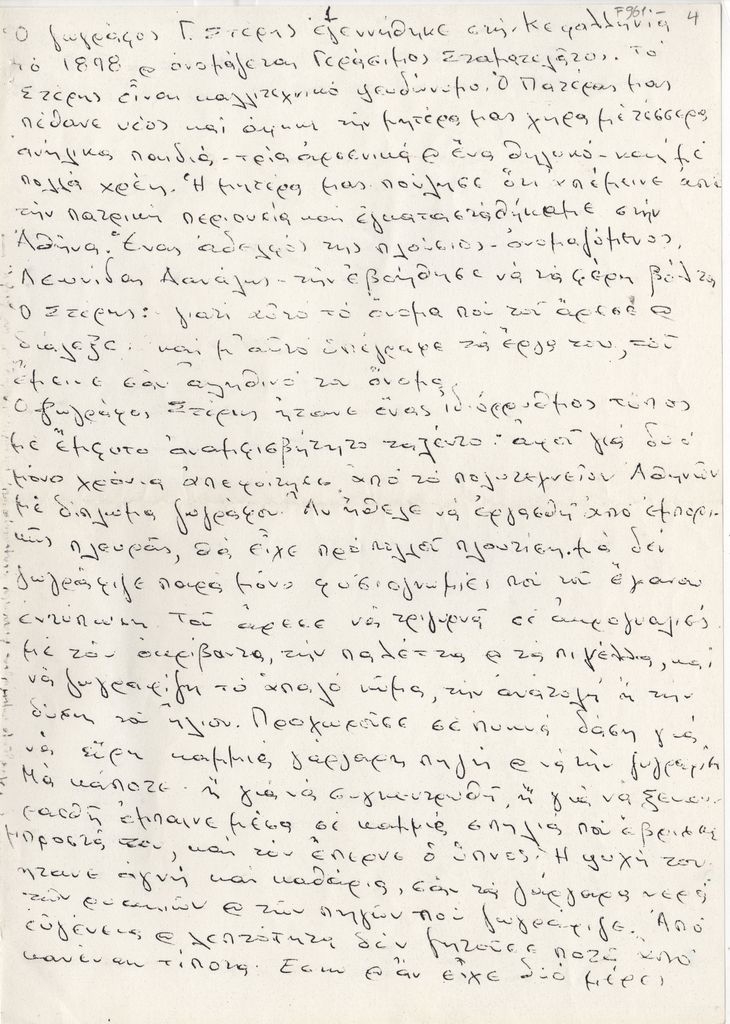 F961- 4
1
Ὁ ζωγράφος Γ. Στέρης ἐγεννήθηκε στή Κεφαλληνία
τό 1898 @ ὀνομάζεται Γεράσιμος Σταματελάτος. Τό
Στέρης εἶναι καλλιτεχνικό ψευδώνυμο. Ὁ Πατέρας μας
πέθανε νέος καί ἄφησε τήν μητέρα μας χήρα μέ τέσσερα
ἀνήλικα παιδιά - τρία ἀρσενικά @ ἕνα θηλυκό - καί μέ
πολλά χρέη. Ἡ μητέρα μας πούλησε ὅτι ὑπέμεινε ἀπό
τήν πατρική περιουσία καί ἐγκατασταθήκαμε στήν
Ἀθήνα. Ἕνας ἀδελφός της πλούσιος - ὀνομαζόμενος,
Λεωνίδας - τήν ἐβοήθησε νά τά φέρη βόλτα
Ὁ Στέρης: γιατί αὐτό τό ὄνομα πού τοῦ ἄρεσε @
διάλεξε· καί μ' αὐτό ὑπέγραφε τά ἔργα του, τοῦ
ἔμεινε σάν ἀληθινό του ὄνομα.
Ὁ ζωγράφος Στέρης ἤτανε ἕνας ἰδιόρρυθμος τύπος
μέ ἔμφυτο ἀναμφισβήτητο ταλέντο: ἀφοῦ γιά δυό
μόνο χρόνια ἀπεφοίτησε ἀπό τό πολυτεχνεῖον Ἀθηνῶν
μέ δίπλωμα ζωγράφου. Ἄν ἤθελε νά ἐργασθῆ ἀπό ἐμπορι-
κῆς πλευρᾶς, θά εἶχε πρό πολλοῦ πλουτίση. μά δέν
ζωγράφιζε παρά μόνο φυσιογνωμίες πού τοῦ ἔκαναν
ἐντύπωση. Τοῦ ἄρεσε νά τριγυρνᾶ σέ ἀκρογιαλιές
μέ τόν ὀκρίβαντα, τήν παλέττα @ τά πινέλλα, καί
νά ζωγραφίζη τό ἁπαλό κῦμα, τήν ἀνατολή ἤ τήν
δύση τοῦ ἥλιου. Προχωροῦσε σέ πυκνά δάση γιά
νά εὕρη καμμιά γάργαρη πηγή @ νά τήν ζωγραφίση
Μά κάποτε ἤ γιά νά συγκεντρωθῆ, ἤ γιά νά ξεκου-
ρασθῆ ἔμπαινε μέσα σέ καμμιά σπηλιά πού εὕρισκε
μπροστά του, καί τόν ἔπερνε ὁ ὕπνος. Ἡ ψυχή του
ἤτανε ἁγνή καί καθάρια, σάν τά γάργαρα νερά
τῶν ρυακιῶν @ τῶν πηγῶν πού ζωγράφιζε. Ἀπό
εὐγένεια @ λεπτότητα δέν ζητοῦσε ποτέ ἀπό
κανέναν τίποτα. Ἔστω @ ἄν εἶχε δυό μέρες